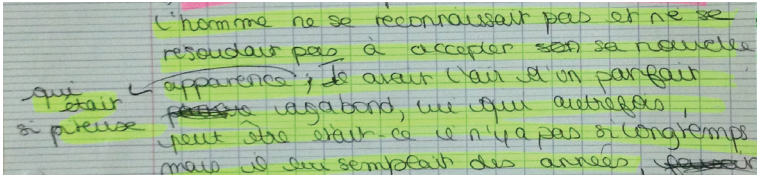 L'homme ne se reconnaissait pas et ne se
resoudait pas à accepter sa nouvelle
qui était si piteuse
apparence ; Il avait l'air d'un parfait
vagabond, lui qui autrefois,
peut être était-ce il n'y a pas si longtemps
mais il lui semplait des années,